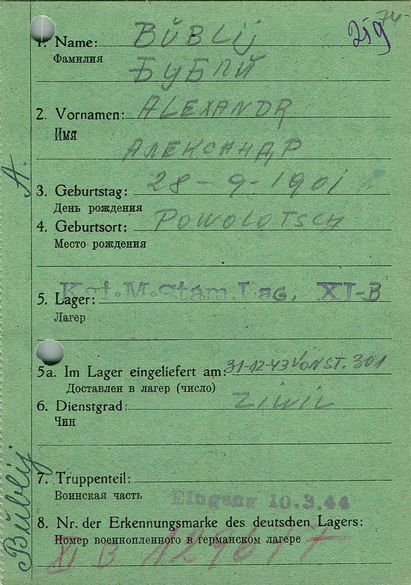 74
219
1. Name: BŬBLIJ
Фамилия БУБЛІЙ
2. Vornamen: ALEXANDR
Имя АЛЕКСАНДР
3. Geburtstag: 28-9-1901
День рождения
4. Geburtsort: POWOLOTSCH
Место рождения
5. Lager: Kgf.M.Stam.Lag. XI-B
Лагерь
5a. Im Lager eingeliefert am: 31-12-43 VON ST. 301
Доставлен в лагерь (число)
6. Dienstgrad: ZIWIL
Чин
7. Truppenteil:
Воинская часть Eingang 10.3.44
8. Nr. der Erkennungsmarke des deutschen Lagers:
Номер военнопленного в германском лагере
XI B
A.
Bŭblij